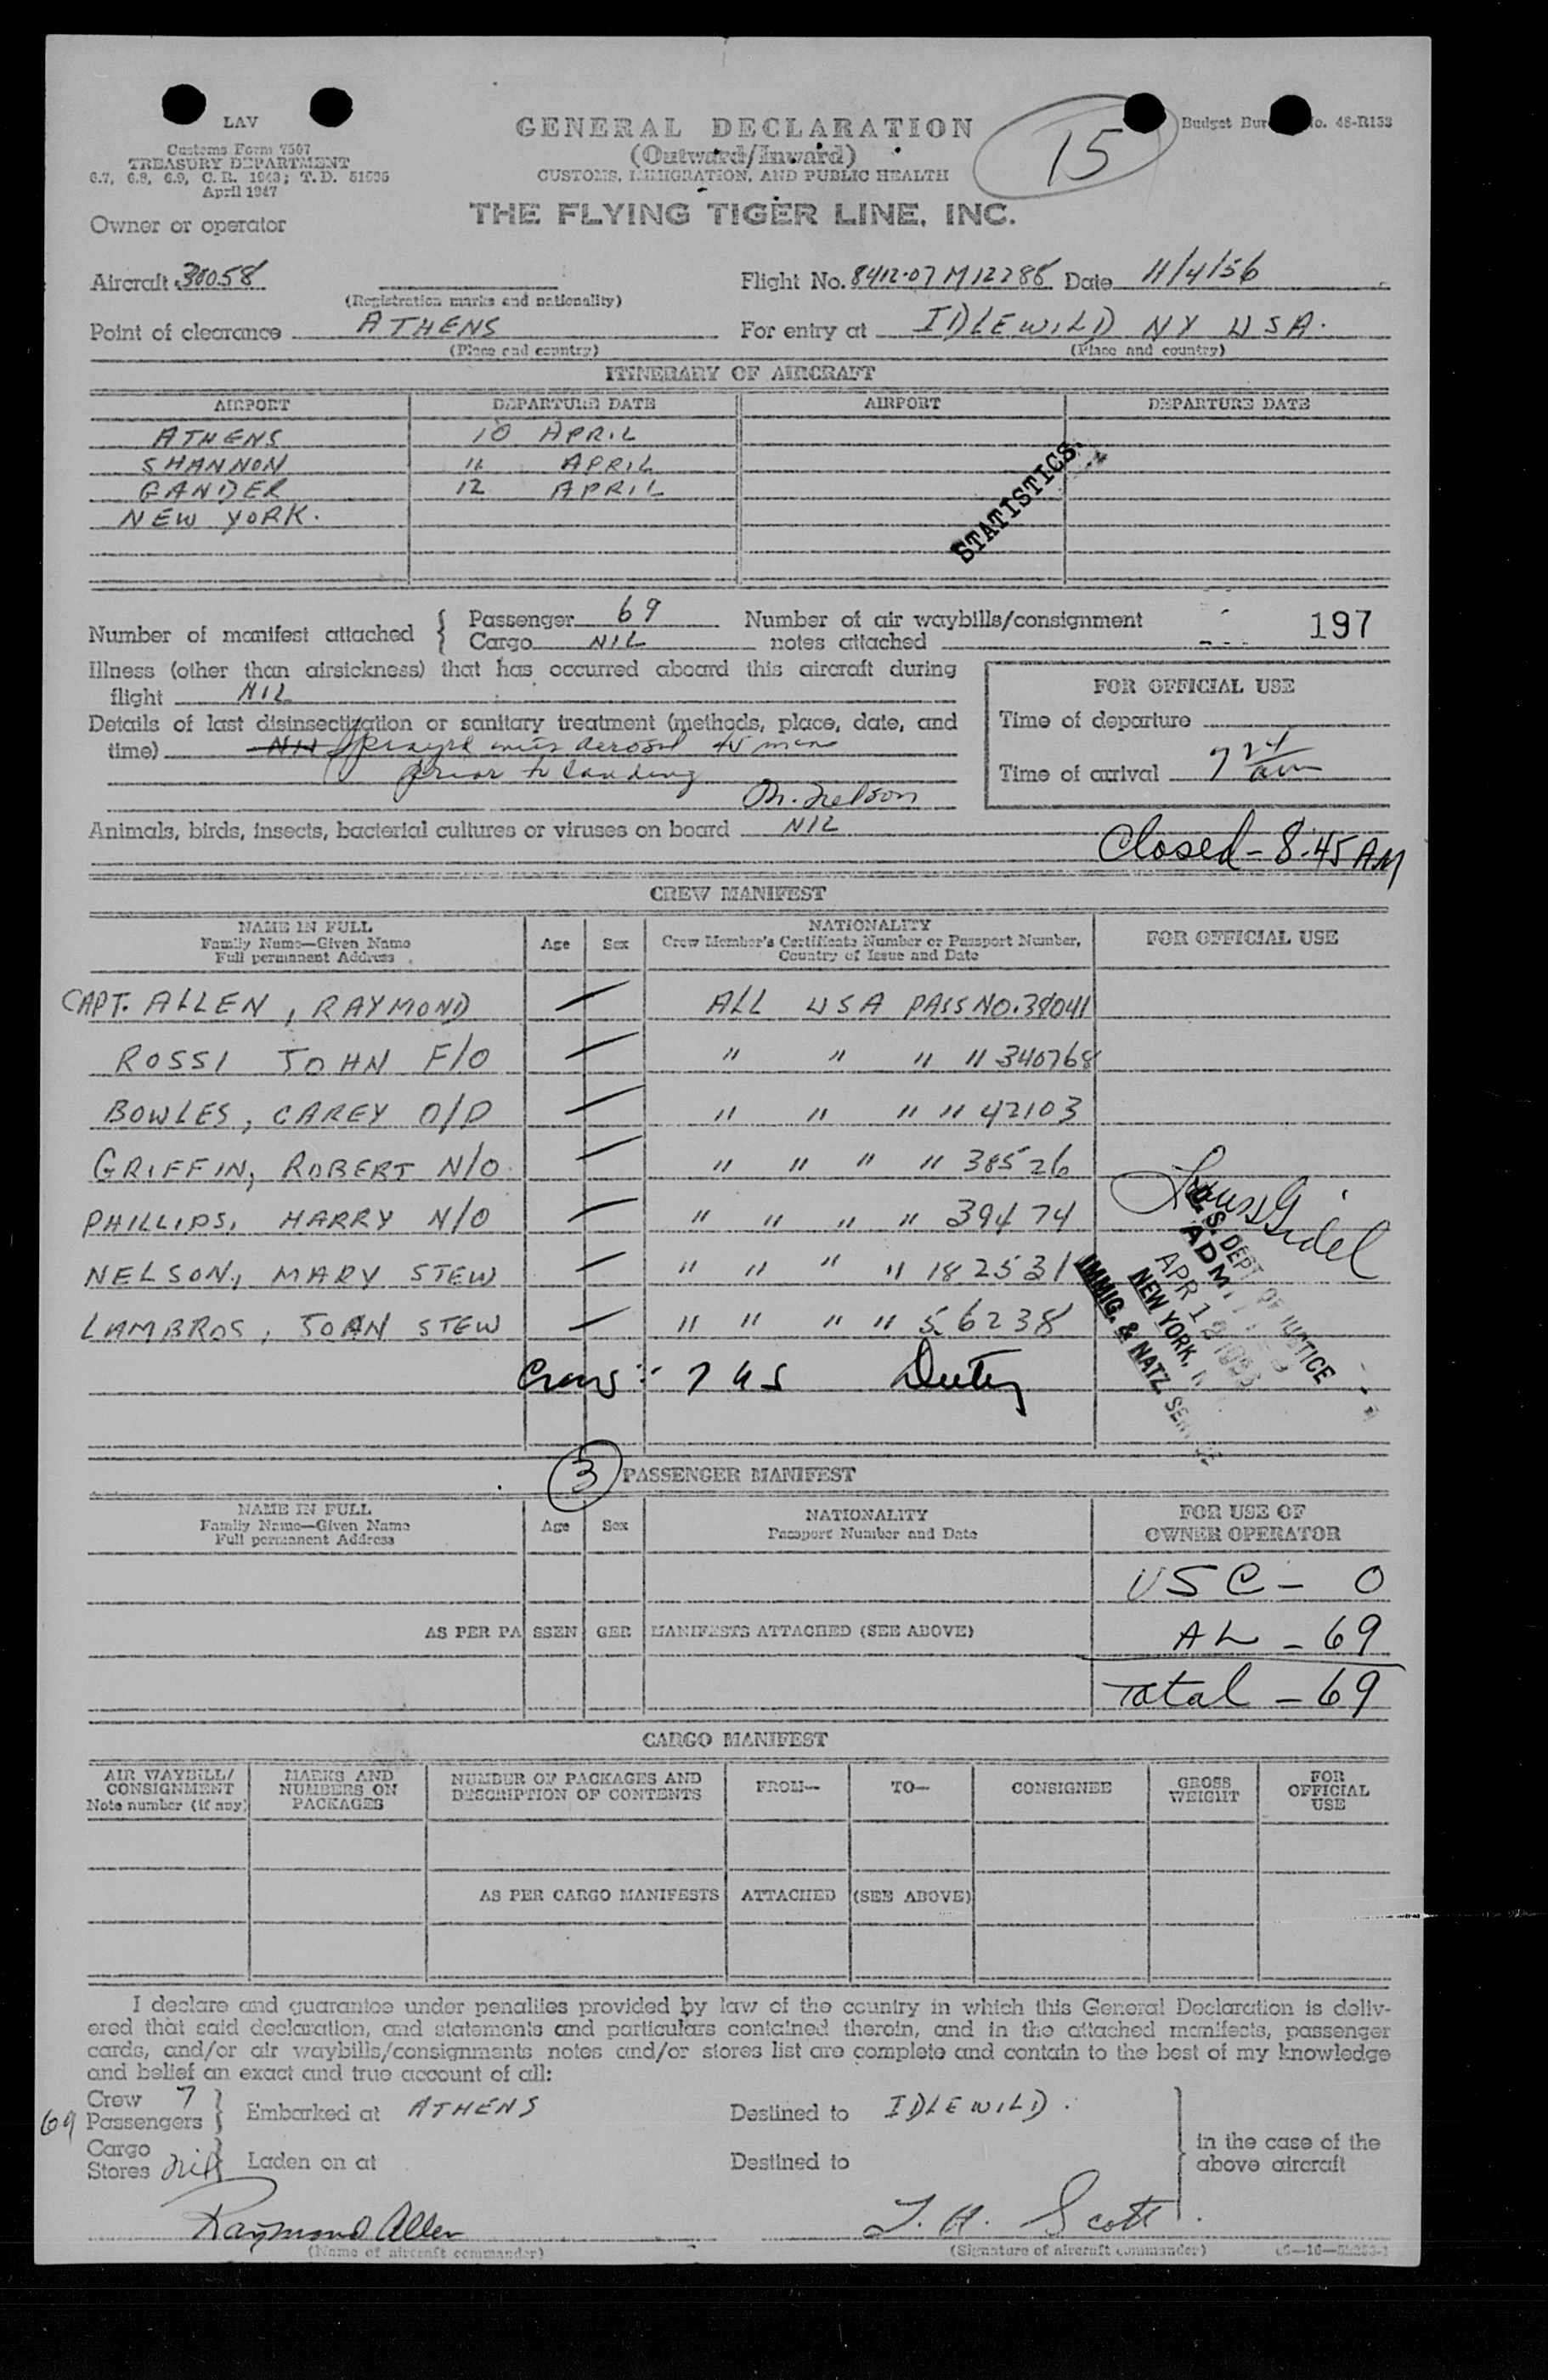 LAV
Customs Form 7507
TREASURY DEPARTMENT
6.7, 6.8, 6.9, C. R. 1943; T. D. 51636
April 1947
GENERAL DECLARATION
(Outward/Inward)
CUSTOMS, IMMIGRATION, AND PUBLIC HEALTH
15
Budget Bur No. 48-R153
Owner or operator
THE FLYING TIGER LINE, INC.
Aircraft 30058
(Registration marks and nationality)
Flight No. 8412-07 M12288 Date 11/4/56
Point of clearance ATHENS
(Place and country)
For entry at IDLEWILD NY USA.
(Place and country)
ITINERARY OF AIRCRAFT
AIRPORT DEPARTURE DATE AIRPORT DEPARTURE DATE
ATHENS 10 APRIL
SHANNON 11 APRIL
GANDER 12 APRIL
NEW YORK.
STATISTICS.
Number of manifest attached { Passenger 69
Cargo NIL
Number of air waybills/consignment
notes attached
197
Illness (other than airsickness) that has occurred aboard this aircraft during
flight NIL
Details of last disinsectization or sanitary treatment (methods, place, date, and
time) Nil Sprayed with aerosol 45 min
prior to landing
M. Nelson
FOR OFFICIAL USE
Time of departure
Time of arrival 7 24 am
Animals, birds, insects, bacterial cultures or viruses on board NIL
Closed - 8:45 AM
CREW MANIFEST
NAME IN FULL
Family Name—Given Name
Full permanent Address
Age Sex
NATIONALITY
Crew Member's Certificate Number or Passport Number,
Country of Issue and Date
FOR OFFICIAL USE
CAPT. ALLEN, RAYMOND — ALL USA PASS NO. 39041
ROSSI JOHN F/O — " " " " 340768
BOWLES, CAREY O/P — " " " " 42103
GRIFFIN, ROBERT N/O. — " " " " 38526
PHILLIPS, HARRY N/O — " " " " 39474
NELSON, MARY STEW — " " " " 182531
LAMBROS, JOAN STEW — " " " " 56238
Crew: 7 US Duty
U. S. DEPT OF JUSTICE
ADMITTED
APR 12
NEW YORK, N
IMMIG. & NATZ. SERVICE
3
PASSENGER MANIFEST
NAME IN FULL
Family Name—Given Name
Full permanent Address
Age Sex
NATIONALITY
Passport Number and Date
FOR USE OF
OWNER OPERATOR
USC - 0
AS PER PASSENGER MANIFESTS ATTACHED (SEE ABOVE)
AL - 69
Total - 69
CARGO MANIFEST
AIR WAYBILL/
CONSIGNMENT
Note number (if any)
MARKS AND
NUMBERS ON
PACKAGES
NUMBER OF PACKAGES AND
DESCRIPTION OF CONTENTS
FROM—
TO—
CONSIGNEE
GROSS
WEIGHT
FOR
OFFICIAL
USE
AS PER CARGO MANIFESTS ATTACHED (SEE ABOVE)
I declare and guarantee under penalties provided by law of the country in which this General Declaration is deliv-
ered that said declaration, and statements and particulars contained therein, and in the attached manifests, passenger
cards, and/or air waybills/consignments notes and/or stores list are complete and contain to the best of my knowledge
and belief an exact and true account of all:
Crew 7
69 Passengers } Embarked at ATHENS Destined to IDLEWILD.
Cargo
Stores Nil } Laden on at Destined to
in the case of the
above aircraft
Raymond Allen
(Name of aircraft commander)
J. H. Scott
(Signature of aircraft commander)